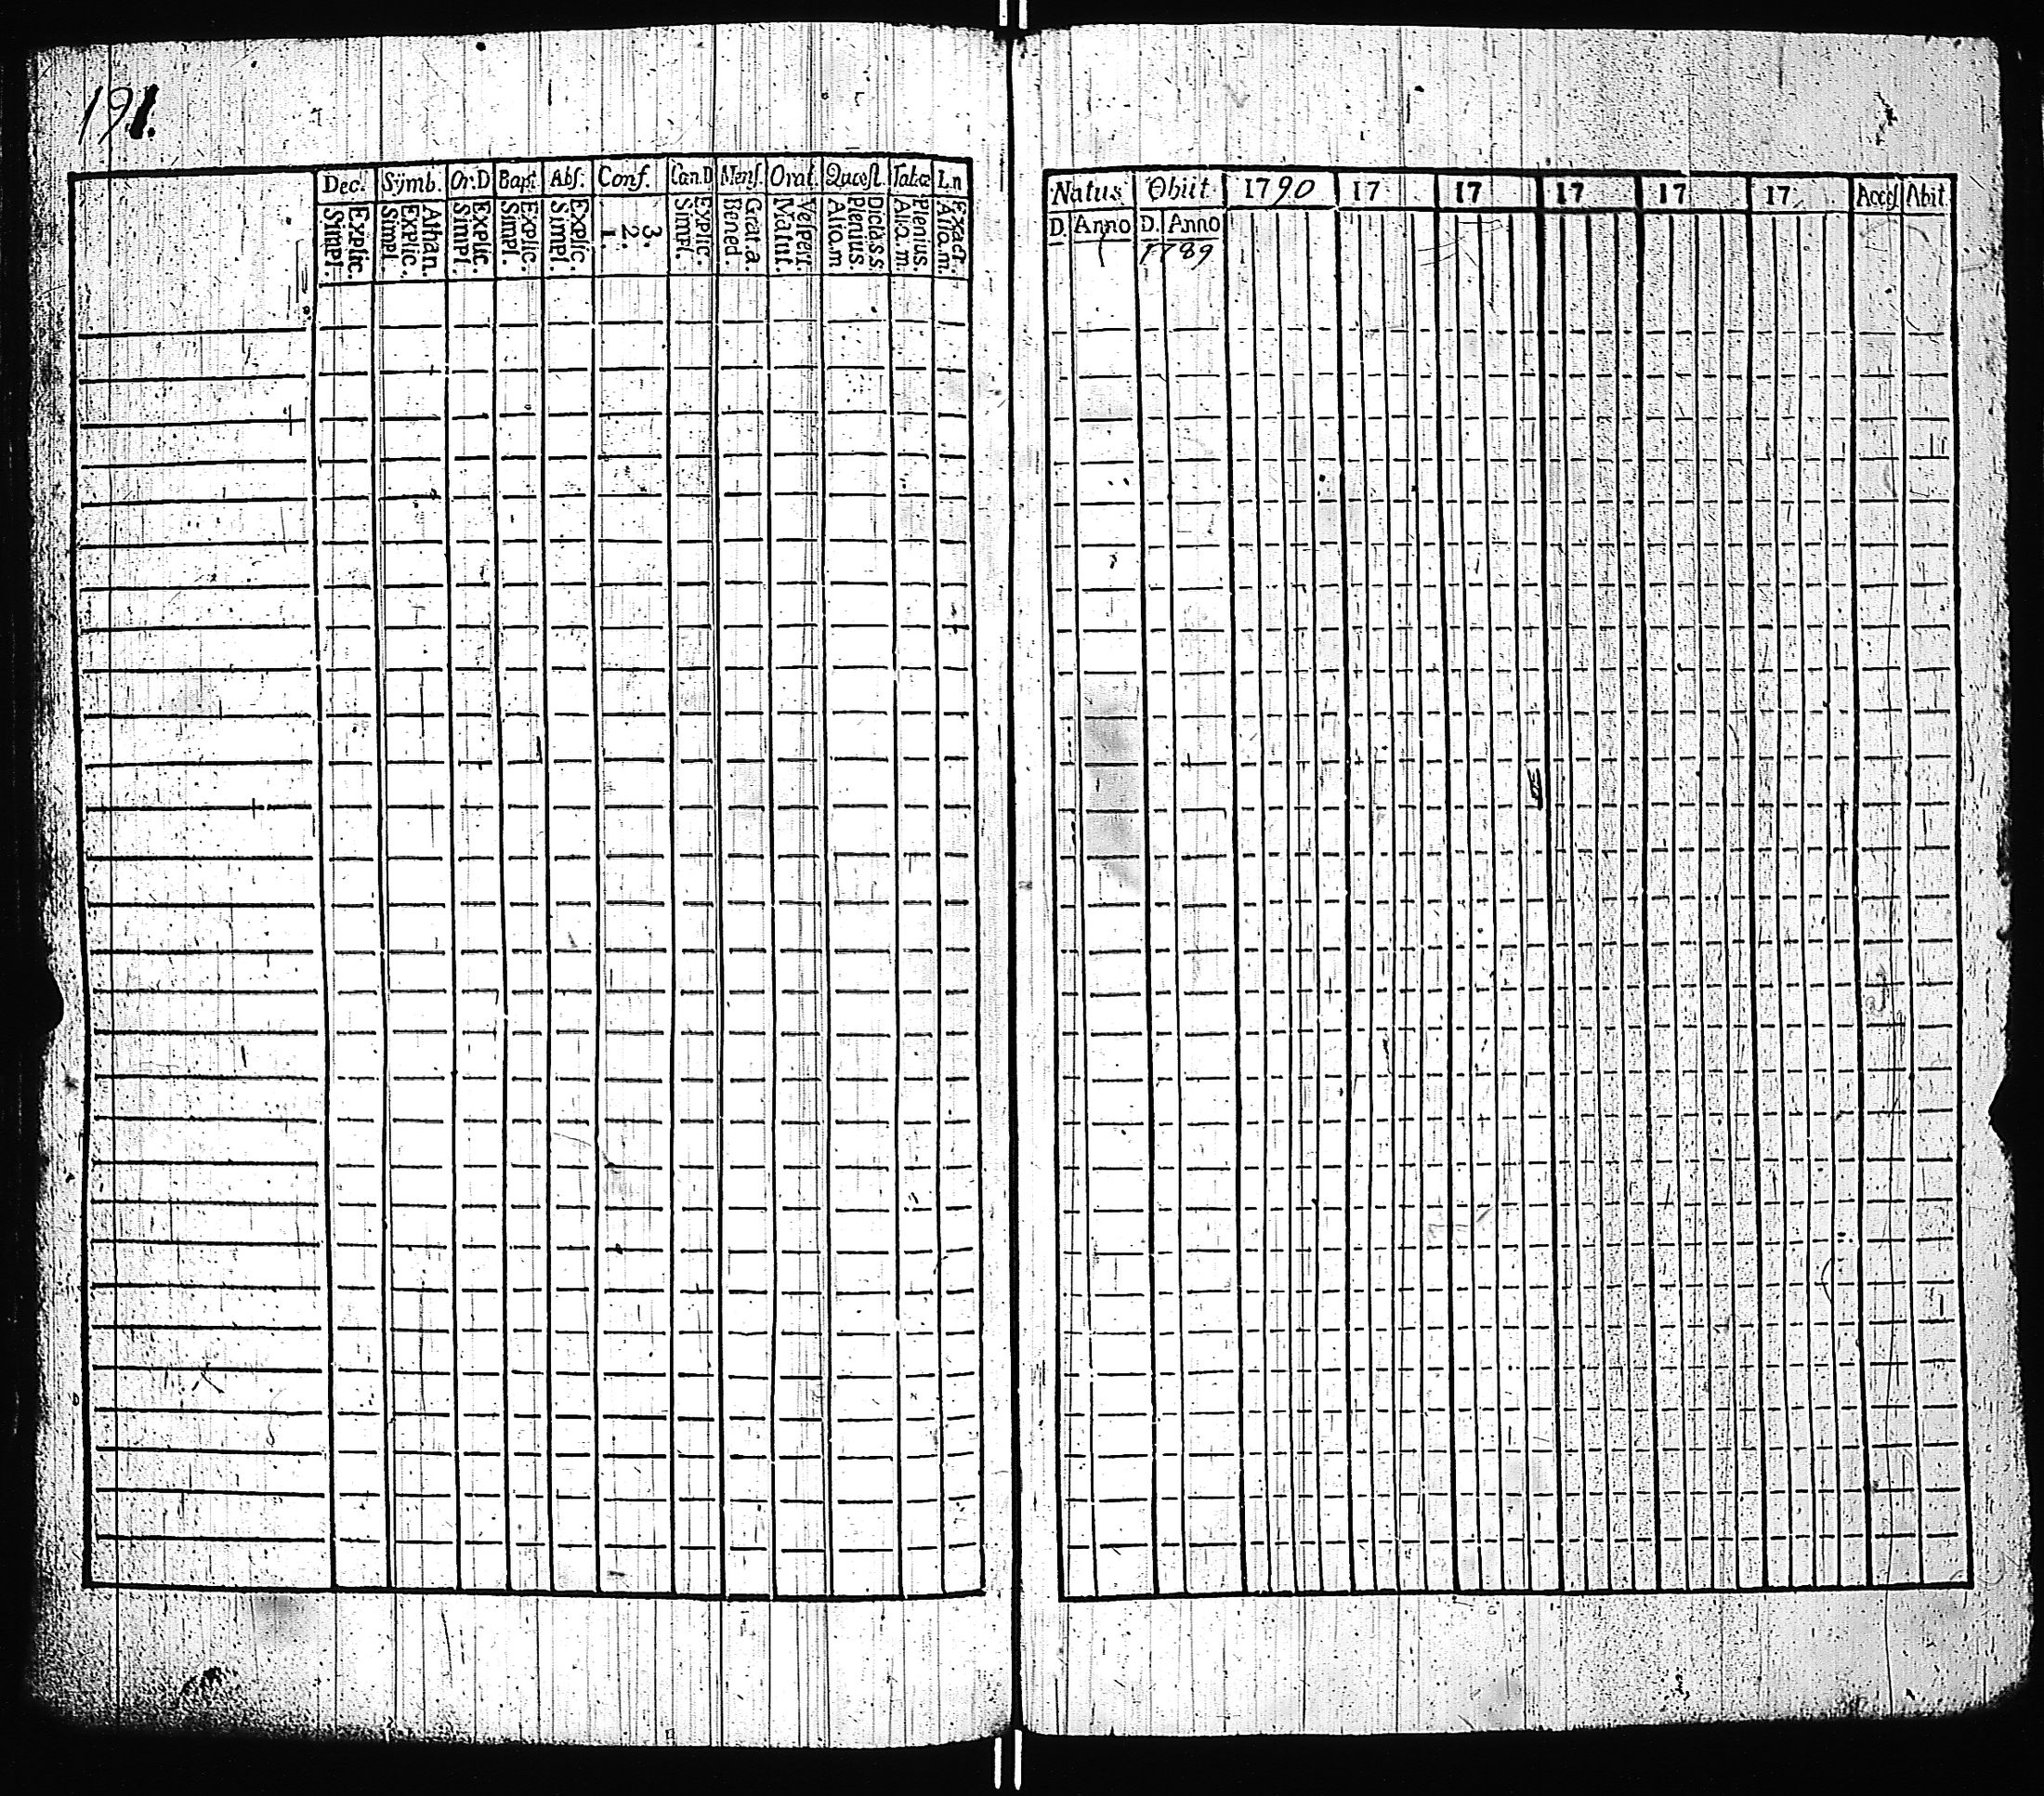 191.
Dec. Symb. Or.D Bapt. Abs. Conf. Can.D Mens. Orat. Quæst. Tabæ Ln
Explic. Simpl. Athan. Explic. Simpl. Explic. Simpl. Explic. Simpl. Explic. Simpl. 3. 2. 1. Explic. Simpl. Grat.a. Bened. Vesper. Matut. Dic.a.s.s. Plenius. Aliq.m. Plenius. Aliq.m. Exact. Aliq.m.
Natus Obiit 1790 17 17 17 17 17 Acces. Abit
D. Anno D. Anno
1789